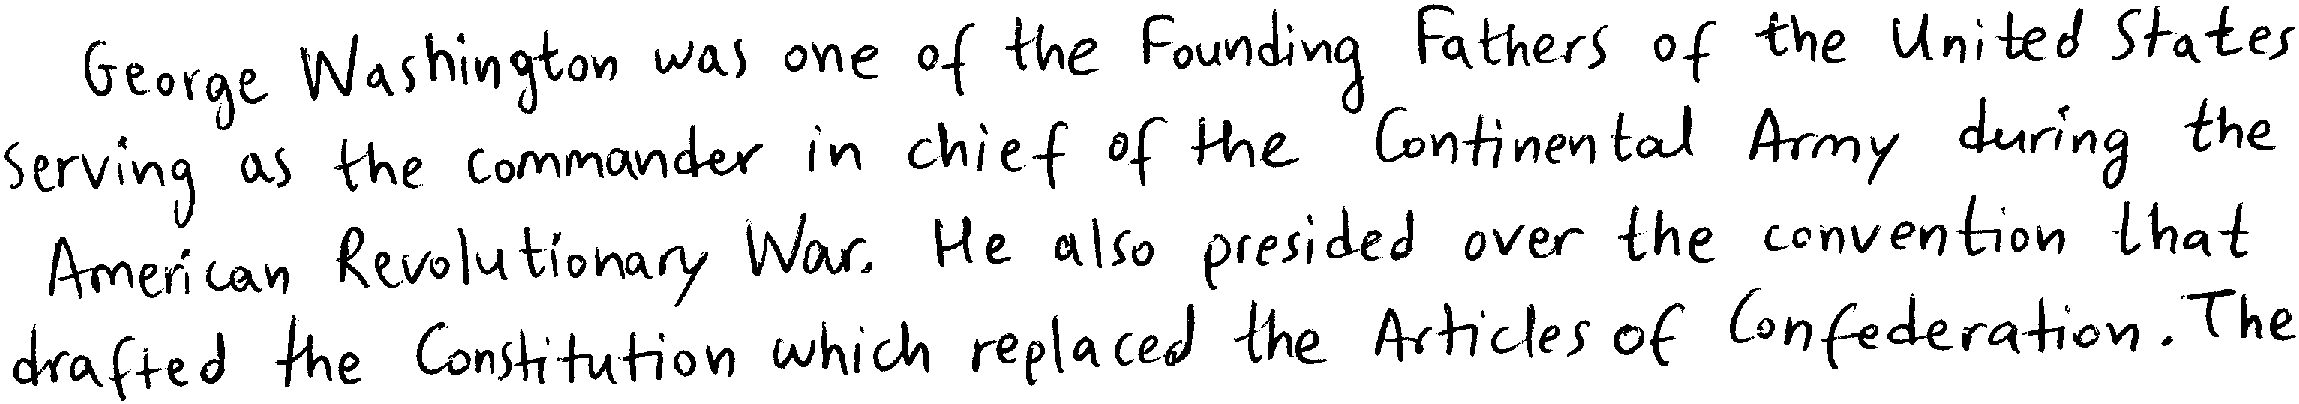 George Washington was one of the Founding Fathers of the United States
serving as the commander in chief of the Continental Army during the
American Revolutionary War. He also presided over the convention that
drafted the Constitution which replaced the Articles of Confederation. The